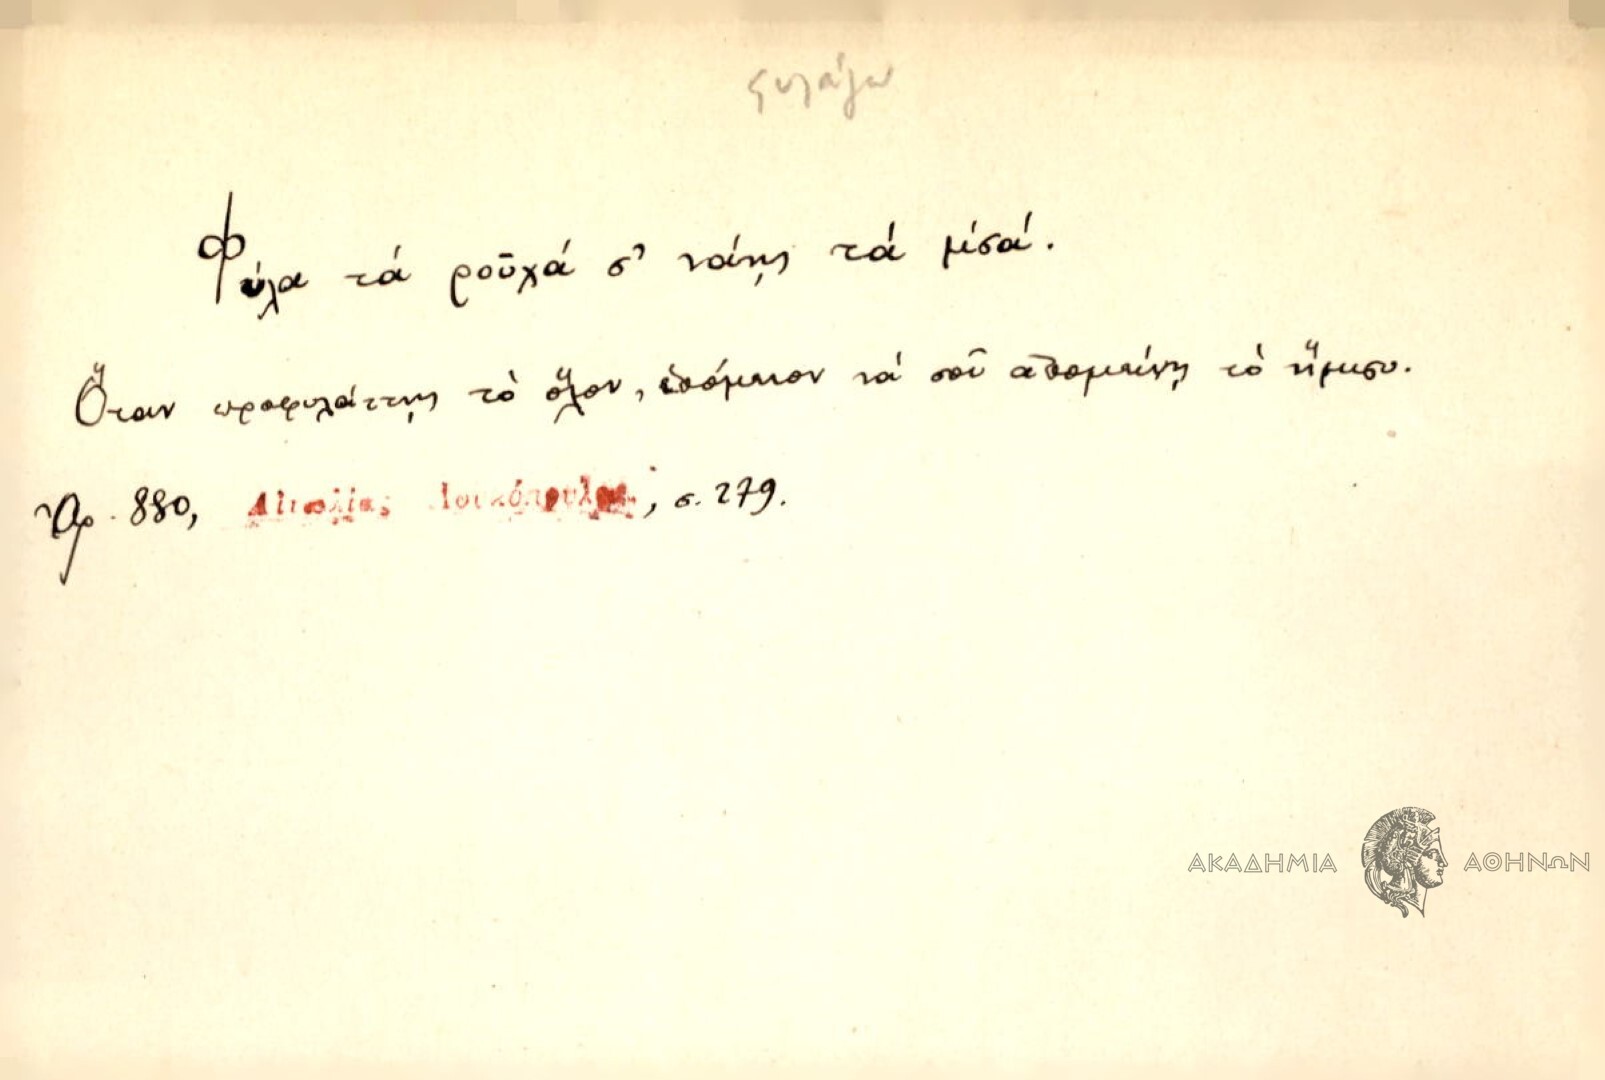 φυλάγω
Φύλα τά ροῦχά σ' νάχης τά μισά.
Ὅταν προφυλάττῃς τὸ ὅλον, ἑπόμενον νά σοῦ απομείνῃ τὸ ἥμισυ.
Ἀρ. 880, Αἰτωλίας Λουκόπουλος, σ. 279.
ΑΚΑΔΗΜΙΑ ΑΘΗΝΩΝ